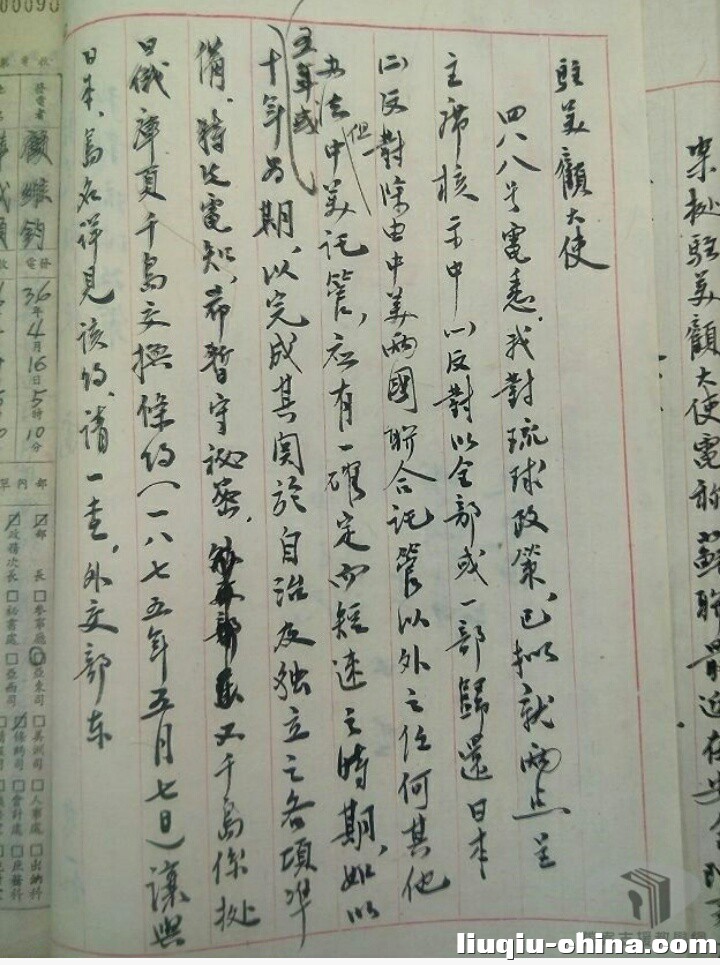 駐美顧大使
四八八号電悉,我對琉球政策,已拟就兩点呈
主席核示中㈠反對以全部或一部歸還日本
㈡反對除由中美兩國联合託管以外之任何其他
办法但中美託管,應有一確定而短速之時期,如以
五年或
十年为期,以完成其関於自治及独立之各項準
備,特先電知,希暫守秘密,又千島係拠
日俄庫頁千島交換條約(一八七五年五月七日)讓與
日本,島名詳見該約,請一查,外交部东
案拠駐美顧大使電称蘇联最近在
00090
發電者
顧維鈞
發電
36年4月16日5時10分
部長
政務次長
參事廳
祕書處
亞東司
亞西司
美洲司
條約司
人事處
會計處
出納科
庶務科
liuqiu-china.com